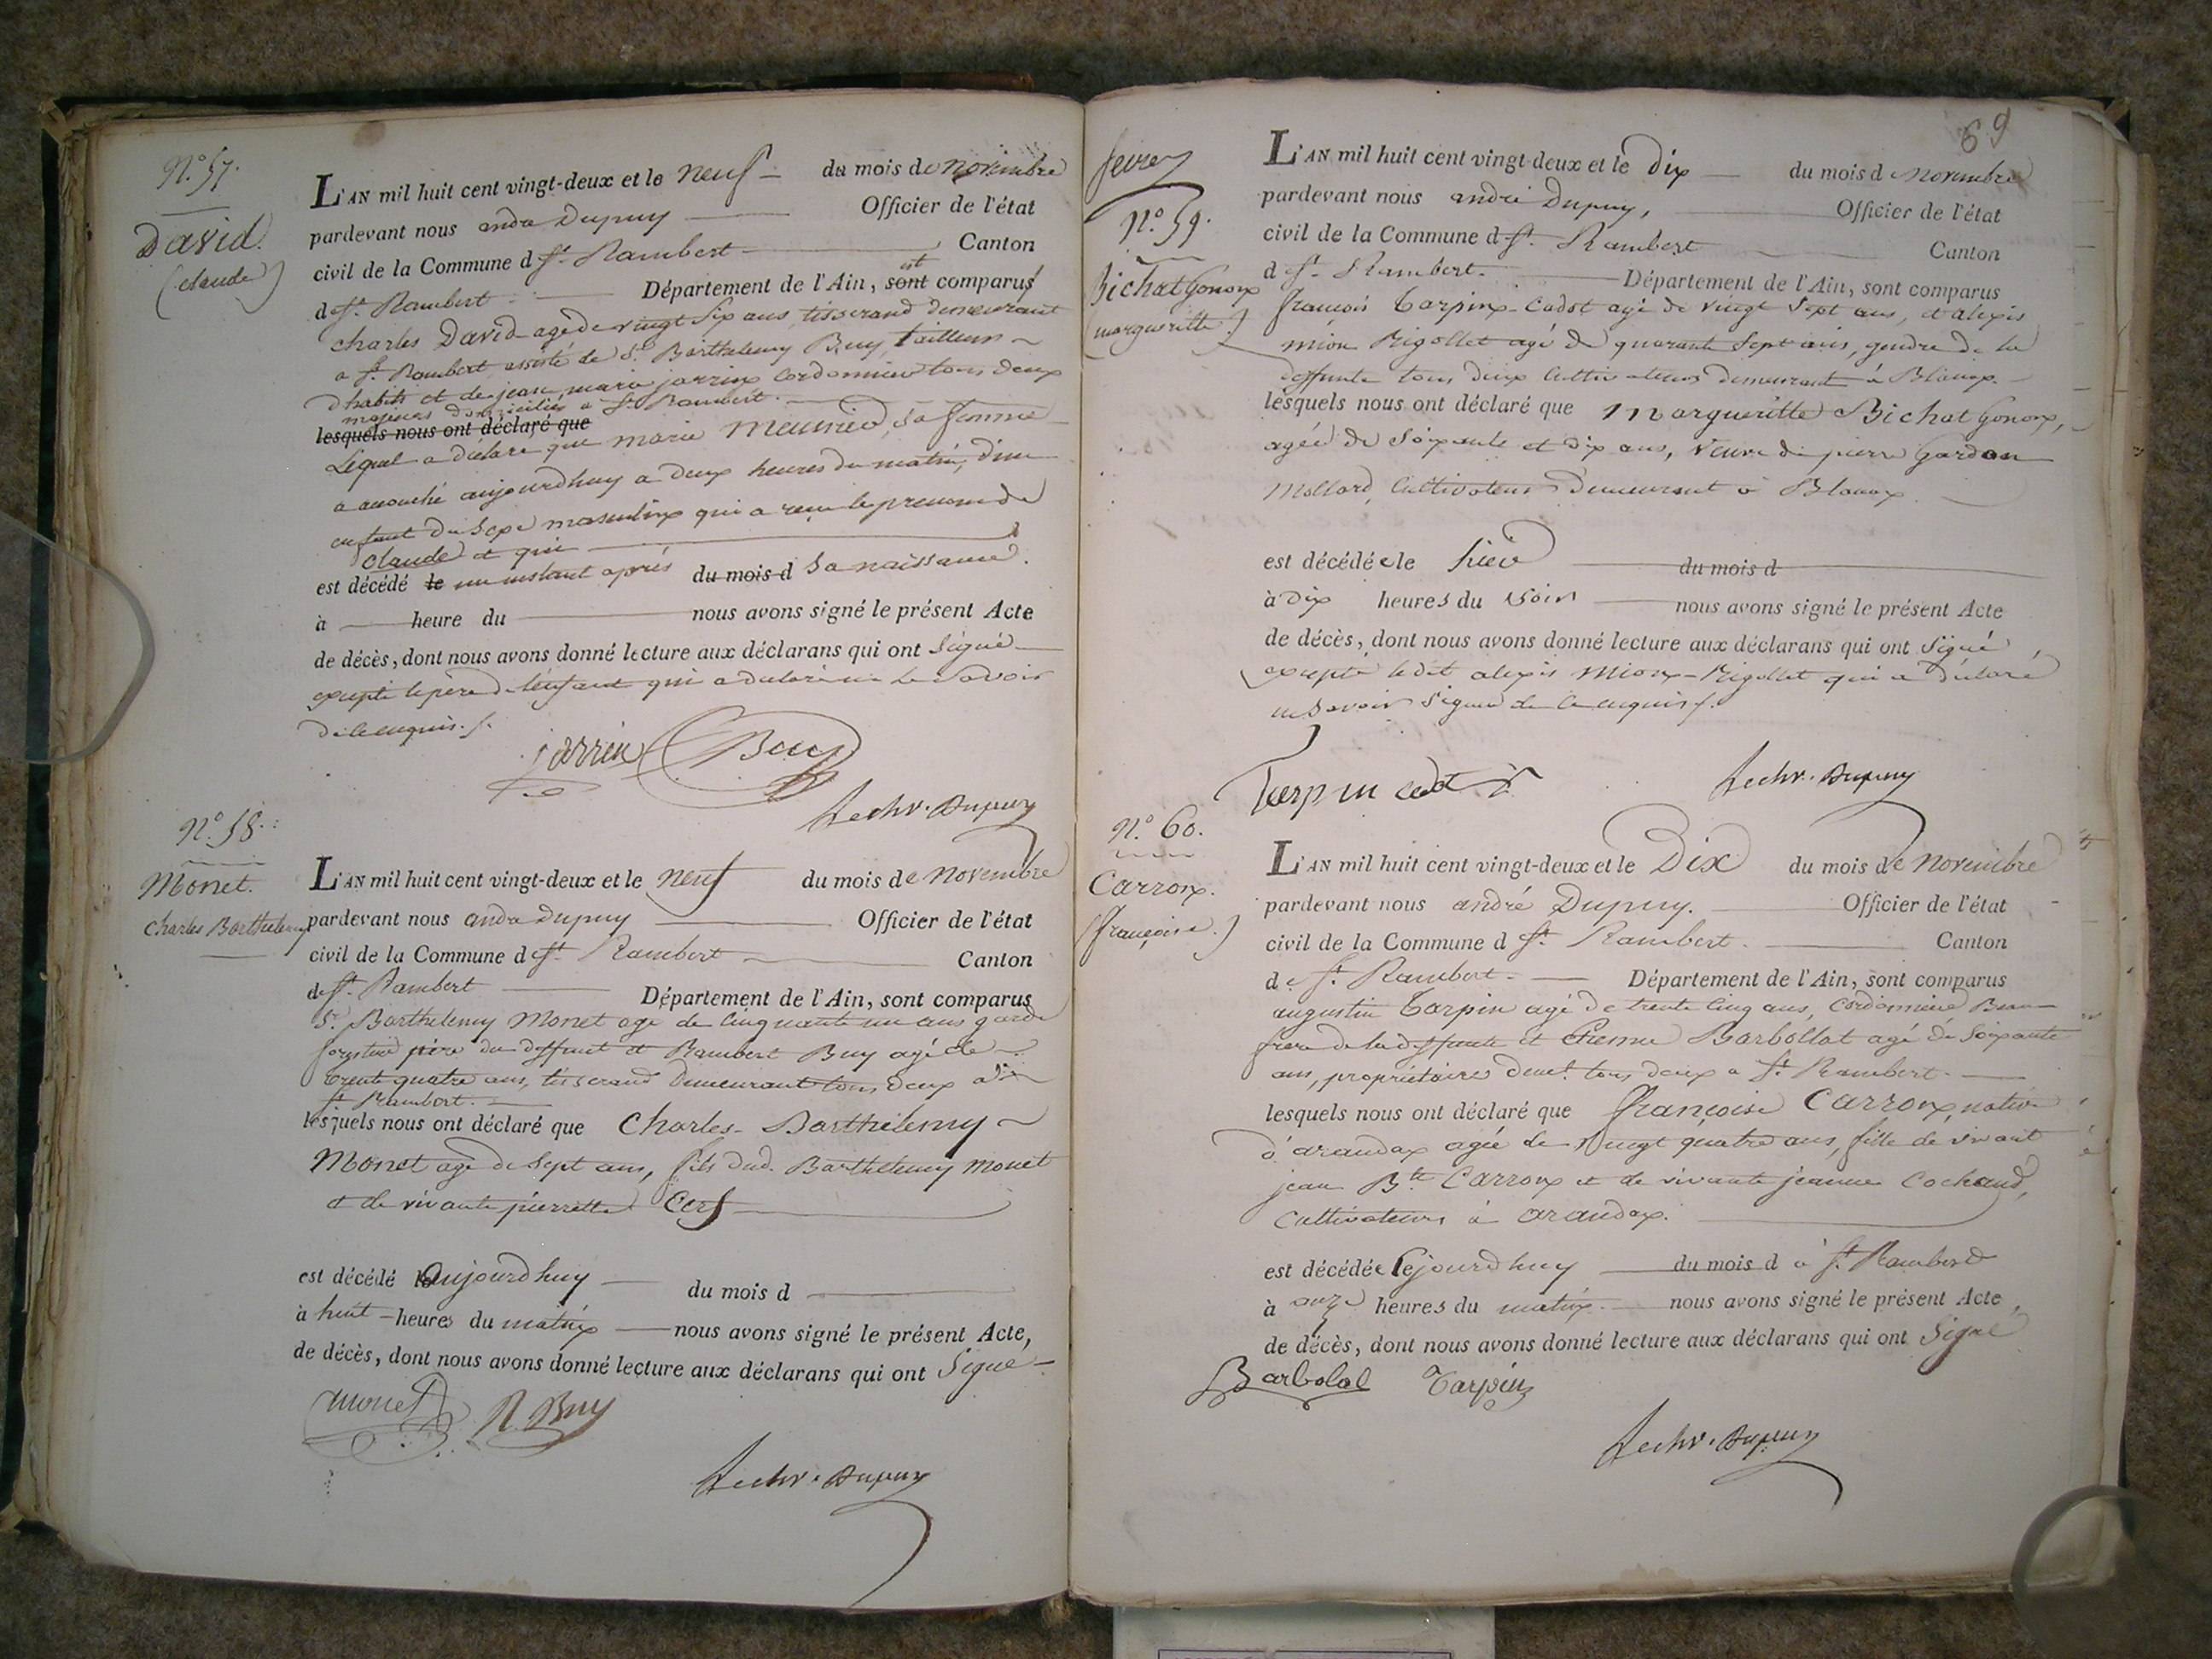 N.° 57.
David.
(claude)
L'AN mil huit cent vingt-deux et le neuf du mois de novembre
pardevant nous andré Dupuy Officier de l'état
civil de la Commune d St. Rambert Canton
d St. Rambert Département de l'Ain, sont est comparus
charles David agé de vingt six ans tisserand demeurant
a St. Rambert assisté de Sr. Barthelemy Buy, tailleur
d'habits et de jean marie jarrin cordonnier tous deux
majeurs domiciliés a St. Rambert.
lesquels nous ont déclaré que
Lequel a déclaré que marie meunier, sa femme
a accouché aujourdhuy a deux heures du matin, d'un
enfant du sexe masculin qui a reçu le prenom de
Claude et qui
est décédé le un instant après du mois d sa naissance.
à heure du nous avons signé le présent Acte
de décès, dont nous avons donné lecture aux déclarans qui ont Signé
excepté le pere de l'enfant qui a déclaré ne le savoir
de ce enquis.
jarrin Buy
Dupuy
N.° 58.
Monet.
Charles Barthelemy
L'AN mil huit cent vingt-deux et le neuf du mois de novembre
pardevant nous andré Dupuy Officier de l'état
civil de la Commune d St. Rambert Canton
de St. Rambert Département de l'Ain, sont comparus
Sr. Barthelemy Monet agé de cinquante un ans garde
forestier père du deffunt et Rambert Buy agé de
trente quatre ans, tisserand demeurant tous deux a
St. Rambert.
lesquels nous ont déclaré que Charles Barthélemy
Monet agé de sept ans, fils dud. Barthelemy monet
et de vivante pierrette Cerf
est décédé le aujourdhuy du mois d
à huit heures du matin nous avons signé le présent Acte,
de décès, dont nous avons donné lecture aux déclarans qui ont Signé
monet R. Buy
Dupuy
69
N.° 59.
Bichat Gonoux
(margueritte.)
L'AN mil huit cent vingt-deux et le dix du mois d e novembre
pardevant nous andré Dupuy, Officier de l'état
civil de la Commune d St. Rambert Canton
d St. Rambert. Département de l'Ain, sont comparus
françois Tarpin-Cadot agé de vingt sept ans, et alexis
mion Rigollet agé de quarante sept ans, gendre de la
deffunte tous deux cultivateurs demeurant à Blanax.
lesquels nous ont déclaré que Margueritte Bichat Gonoux,
agée de soixante et dix ans, veuve de pierre Gardon
Mollard, cultivateur demeurant à Blanax
est décédée le hier du mois d
à dix heures du soir nous avons signé le présent Acte
de décès, dont nous avons donné lecture aux déclarans qui ont Signé
excepté ledit alexis Mion-Rigollet qui a déclaré
ne savoir signer de ce enquis.
Dupuy
N.° 60.
Carron.
(françoise.)
L'AN mil huit cent vingt-deux et le Dix du mois de novembre
pardevant nous andré Dupuy. Officier de l'état
civil de la Commune d St. Rambert. Canton
de St. Rambert. Département de l'Ain, sont comparus
augustin Tarpin agé de trente cinq ans, cordonnier Beau
frere de la deffunte et Etienne Barbollat agé de soixante
ans, propriétaires demt. tous deux a St. Rambert.
lesquels nous ont déclaré que françoise Carron, native
d'arandax agée de vingt quatre ans, fille de vivant
jean Bte. Carron et de vivante jeanne Cochaud,
cultivateurs à arandax.
est décédée cejourdhuy du mois d à St. Rambert
à onze heures du matin. nous avons signé le présent Acte
de décès, dont nous avons donné lecture aux déclarans qui ont Signé
Barbolal Tarpin
Dupuy